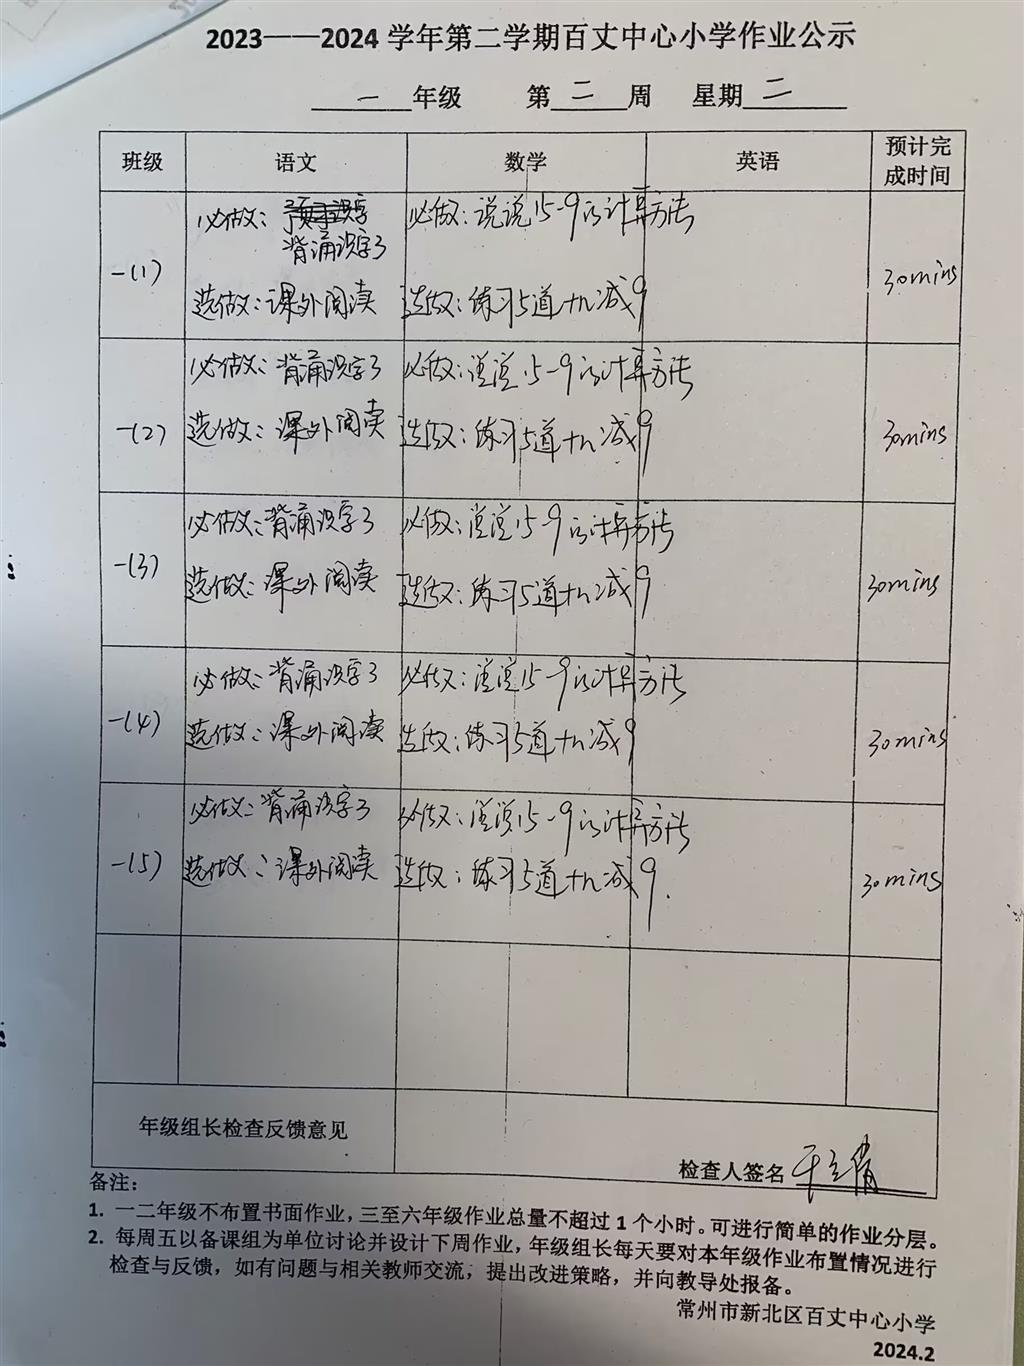 2023——2024 学年第二学期百丈中心小学作业公示
一年级 第二周 星期二
班级 语文 数学 英语 预计完成时间
一(1) 必做: 必做:说说15-9的计算方法 30mins
背诵识字3
选做:课外阅读 选做:练习5道十几减9
一(2) 必做:背诵识字3 必做:说说15-9的计算方法 30mins
选做:课外阅读 选做:练习5道十几减9
一(3) 必做:背诵识字3 必做:说说15-9的计算方法 30mins
选做:课外阅读 选做:练习5道十几减9
一(4) 必做:背诵识字3 必做:说说15-9的计算方法 30mins
选做:课外阅读 选做:练习5道十几减9
一(5) 必做:背诵识字3 必做:说说15-9的计算方法 30mins
选做:课外阅读 选做:练习5道十几减9.
年级组长检查反馈意见
检查人签名
备注:
1. 一二年级不布置书面作业,三至六年级作业总量不超过 1 个小时。可进行简单的作业分层。
2. 每周五以备课组为单位讨论并设计下周作业,年级组长每天要对本年级作业布置情况进行
检查与反馈,如有问题与相关教师交流,提出改进策略,并向教导处报备。
常州市新北区百丈中心小学
2024.2